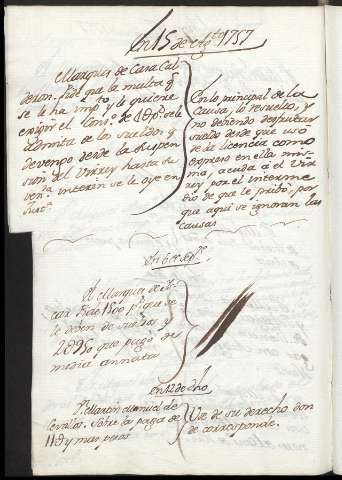 En 15 de Agto 1757
Marques de Cara Cal
deron. Pide que la multa q̃
se le ha impto y le quiere
exigir el Conso. de se le
de los sueldos q̃
devengo desde la suspen
sion del Virrey hasta su
venda interin se le oye en
Justa
En lo principal de la
Causa, lo resuelto, y
no debiendo desfrutar
sueldo desde que uso
de la licencia como
expreso en ella mis-
ma, acuda á el Vir
rey por el interme
dio de que le privò, por
que aqui se ignoran las
causas
En 6 de
El Marques de
que se
le deben de sueldos y
que pagò de
media annata
en 12 de dho
Dn Martin Manual de
Cevallos. Sobre la paga de
y mas pesos
Use de su derecho don
de corresponde.